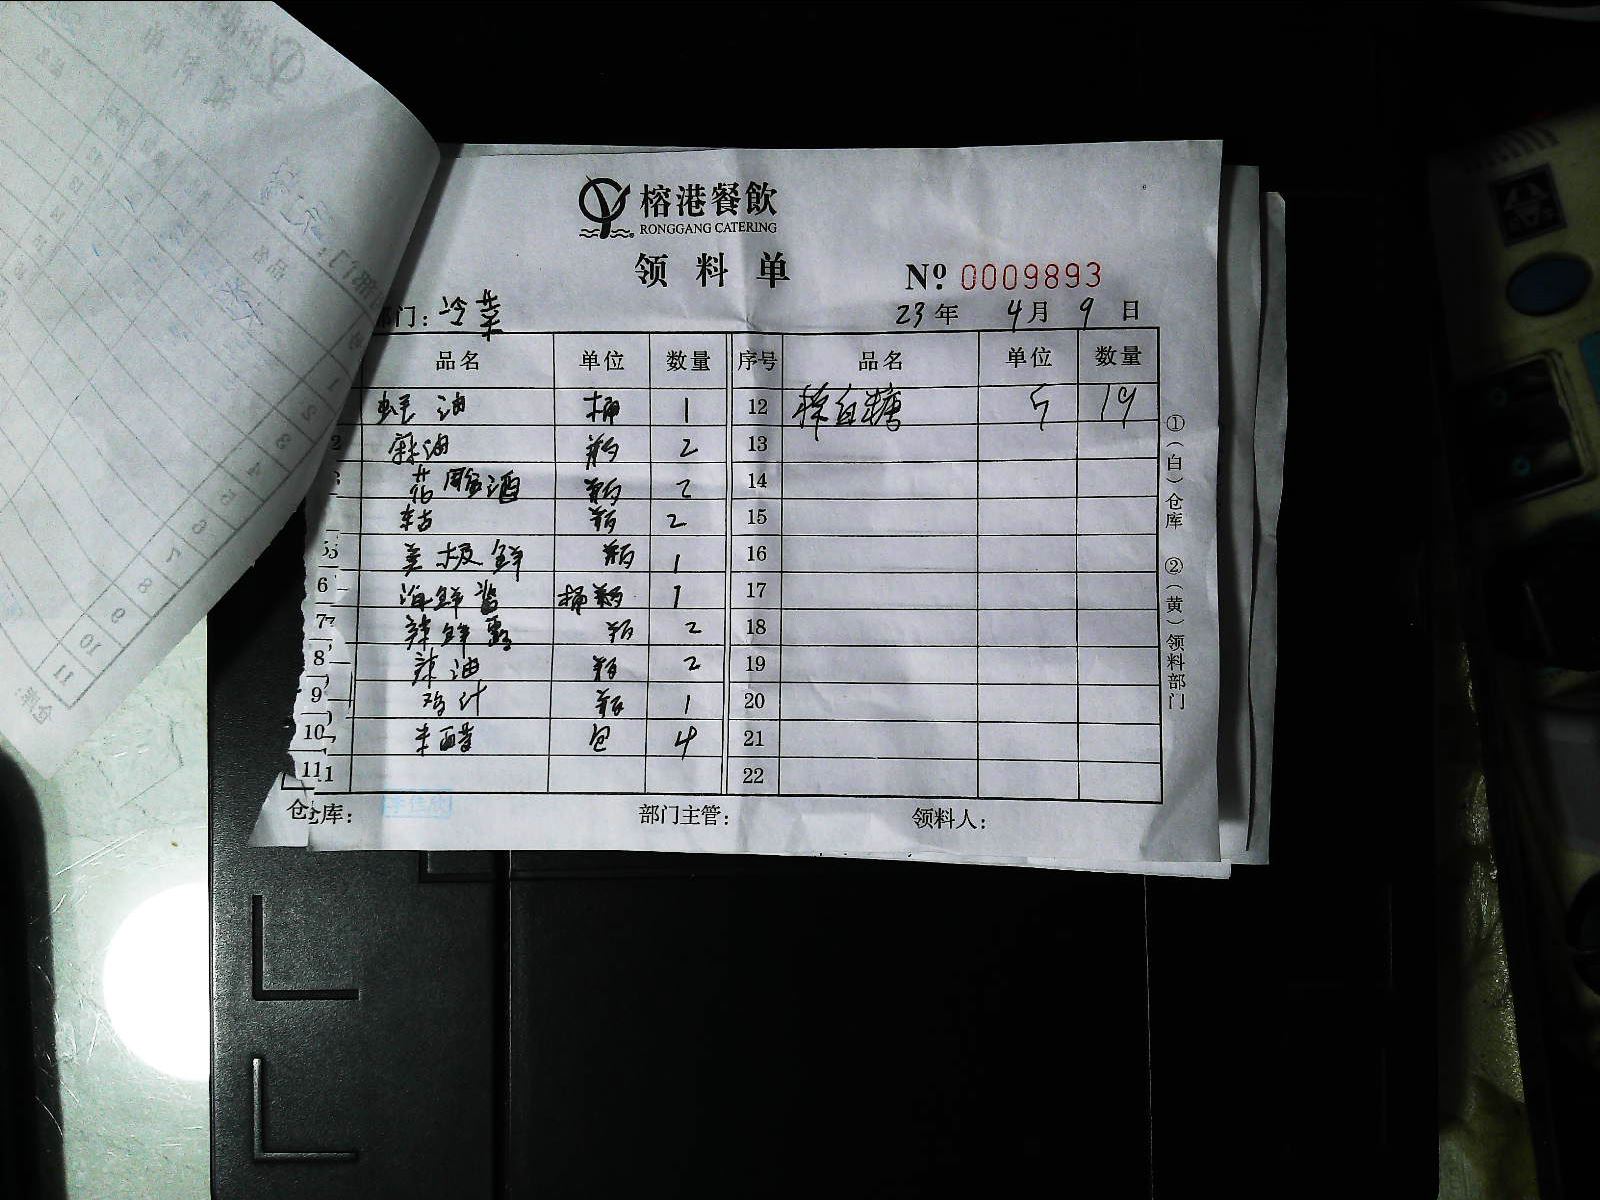 榕港餐飲
RONGGANG CATERING
领料单
№ 0009893
部门: 冷菜 23年 4月 9日
品名 单位 数量 序号 品名 单位 数量
蚝油 桶 1 12 绵白糖 斤 19
2 麻油 瓶 2 13
3 花雕酒 瓶 2 14
瓶 2 15
5 美极鲜 瓶 1 16
6 海鲜酱 瓶 1 17
7 辣鲜露 瓶 2 18
8 辣油 瓶 2 19
9 鸡汁 瓶 1 20
10 米醋 包 4 21
11 22
仓库: 李佳欣 部门主管: 领料人:
①(白)仓库 ②(黄)领料部门